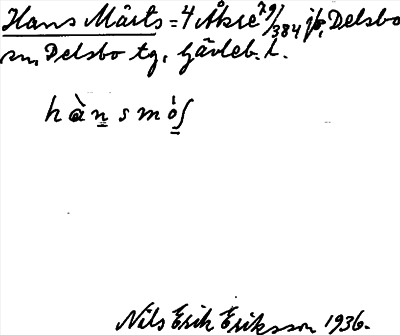 Hans Märts = 4 Åkre 79/384 jb, Delsbo
sn, Delsbo tg, Gävleb. l.
hànsmò̱ʃ
Nils Erik Eriksson 1936.